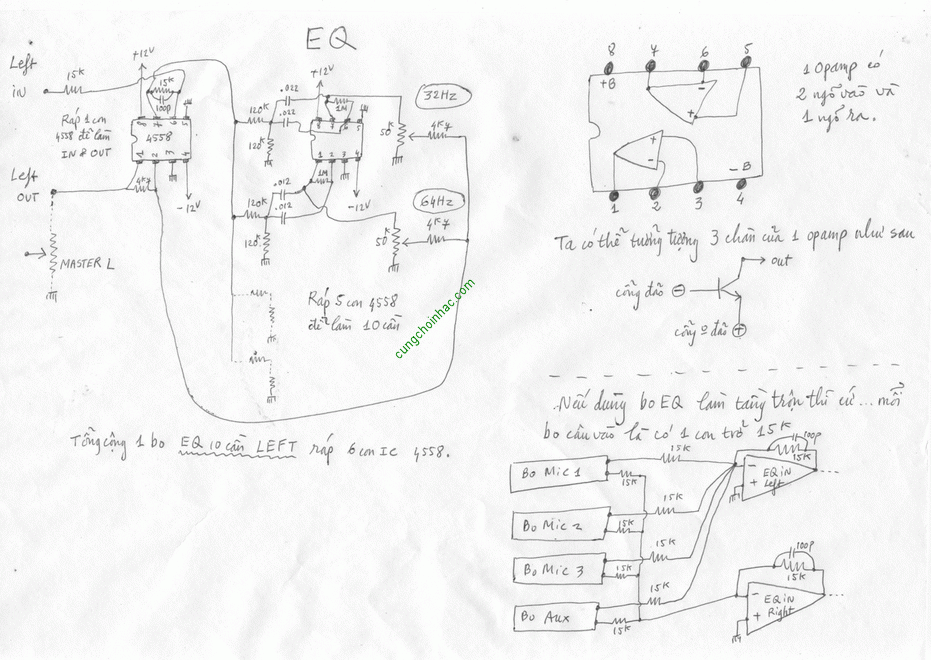 EQ
Left
IN
15K
+12V
15K
100P
8 7 6 5
4558
1 2 3 4
Ráp 1 con
4558 để làm
IN & OUT
Left
OUT
4K7
-12V
MASTER L
120K
.022
.022
120K
+12V
1M
8 7 6 5
1 2 3 4
1M
-12V
50K
32Hz
4K7
120K
.012
.012
120K
50K
64Hz
4K7
Ráp 5 con 4558
để làm 10 cần
cungchoinhac.com
Tổng cộng 1 bo EQ 10 cần LEFT ráp 6 con IC 4558.
8 7 6 5
+B
-B
1 2 3 4
1 Opamp có
2 ngõ vào và
1 ngõ ra.
Ta có thể tưởng tượng 3 chân của 1 opamp như sau
out
cổng đảo
cổng o đảo
Nếu dùng bo EQ làm tầng trộn thì cứ ... mỗi
bo câu vào là có 1 con trở 15K
Bo Mic 1
15K
15K
Bo Mic 2
15K
15K
Bo Mic 3
15K
15K
Bo Aux
15K
15K
100P
15K
EQ IN
Left
100P
15K
EQ IN
Right